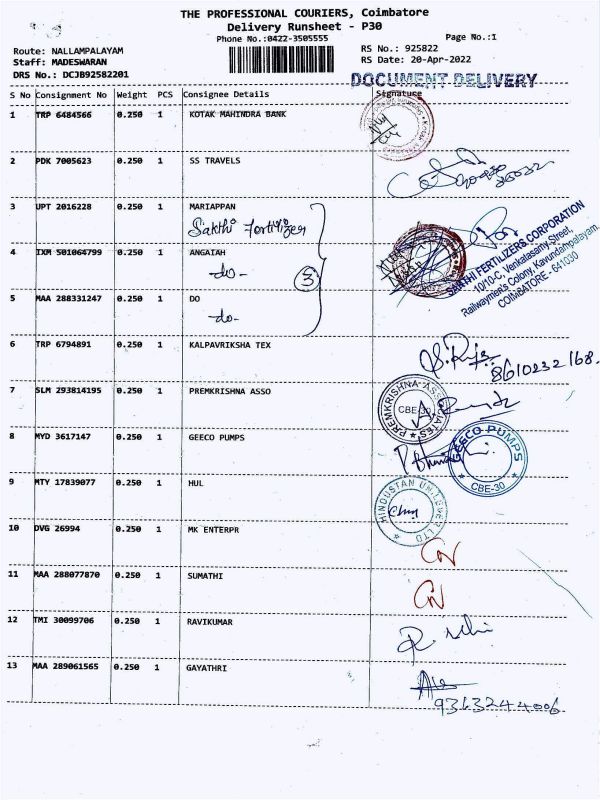 THE PROFESSIONAL COURIERS, Coimbatore
Delivery Runsheet - P30
Phone No.:0422-3505555
Page No.:1
Route: NALLAMPALAYAM
RS No.: 925822
Staff: MADESWARAN
RS Date: 20-Apr-2022
DRS No.: DCJB92582201
DOCUMENT DELIVERY
S No Consignment No Weight PCS Consignee Details Signature
1 TRP 6484566 0.250 1 KOTAK MAHINDRA BANK
2 PDK 7005623 0.250 1 SS TRAVELS
3 UPT 2016228 0.250 1 MARIAPPAN
Sakthi Fertilizer
4 IXM 501064799 0.250 1 ANGAIAH
-do-
3
SAKTHI FERTILIZERS CORPORATION
10/10-C, Venkatasamy Street,
Railwaymen's Colony, Kavundampalayam,
COIMBATORE - 641030
5 MAA 288331247 0.250 1 DO
-do-
6 TRP 6794891 0.250 1 KALPAVRIKSHA TEX
8610232168
7 SLM 293814195 0.250 1 PREMKRISHNA ASSO
PREMKRISHNA ASSOCIATES
CBE-30
8 MYD 3617147 0.250 1 GEECO PUMPS
GEECO PUMPS
CBE-30
9 MTY 17839077 0.250 1 HUL
HINDUSTAN UNILEVER LTD
10 DVG 26994 0.250 1 MK ENTERPR
CN
11 MAA 288077870 0.250 1 SUMATHI
CN
12 TMI 30099706 0.250 1 RAVIKUMAR
13 MAA 289061565 0.250 1 GAYATHRI
9363244006